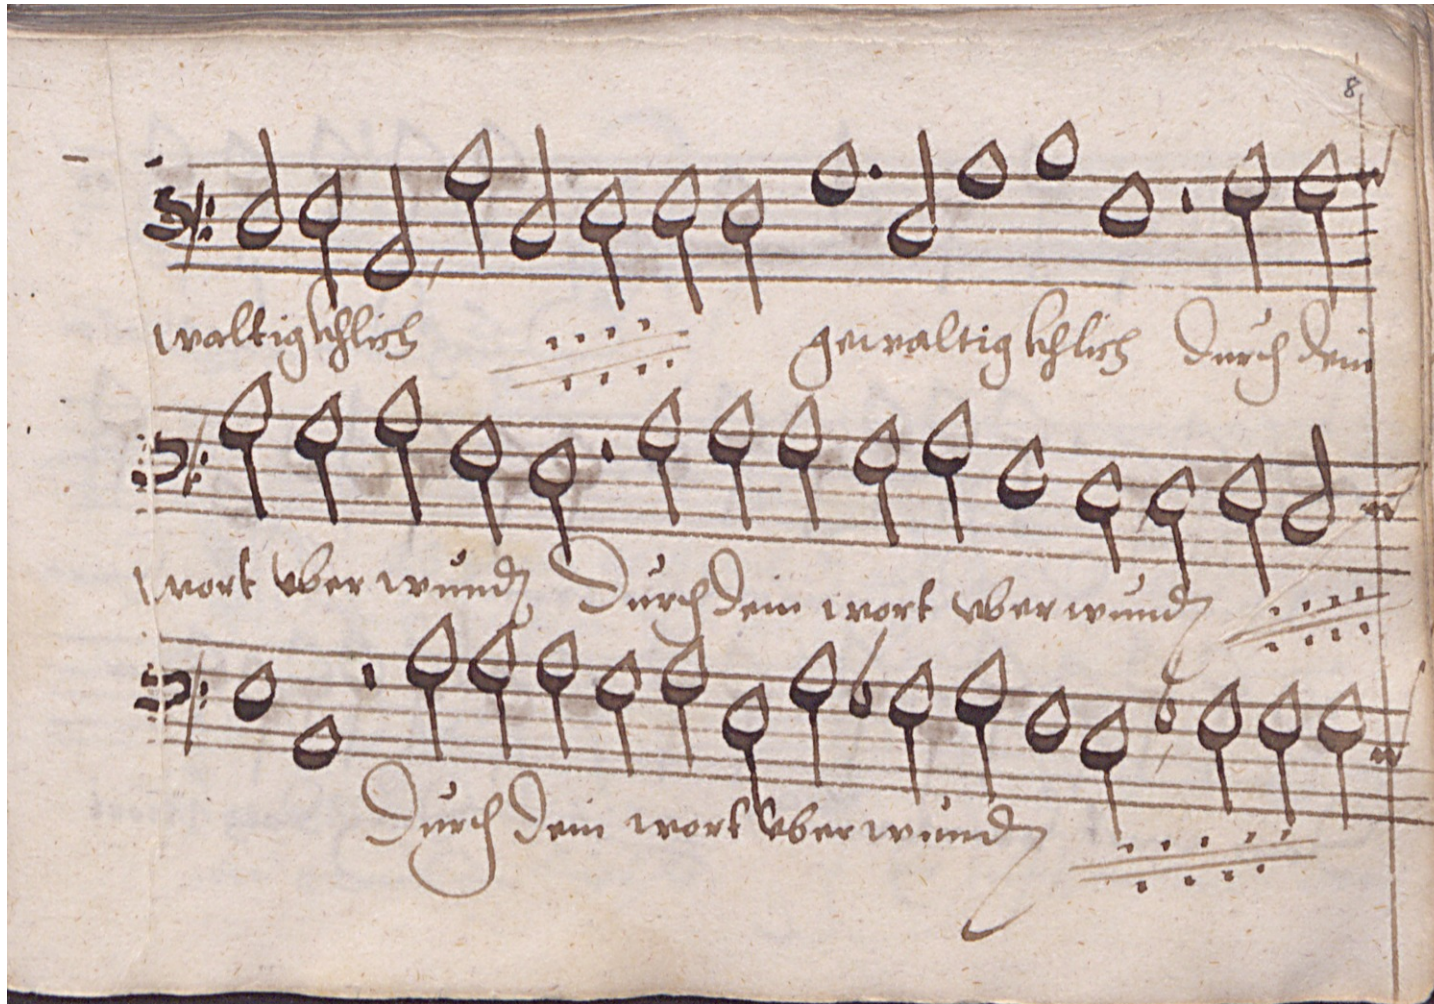 8
waltigkhlich gewaltigkhlich durch dein
wort vber wund durch dein wort vber wund
durch dein wort vber wund